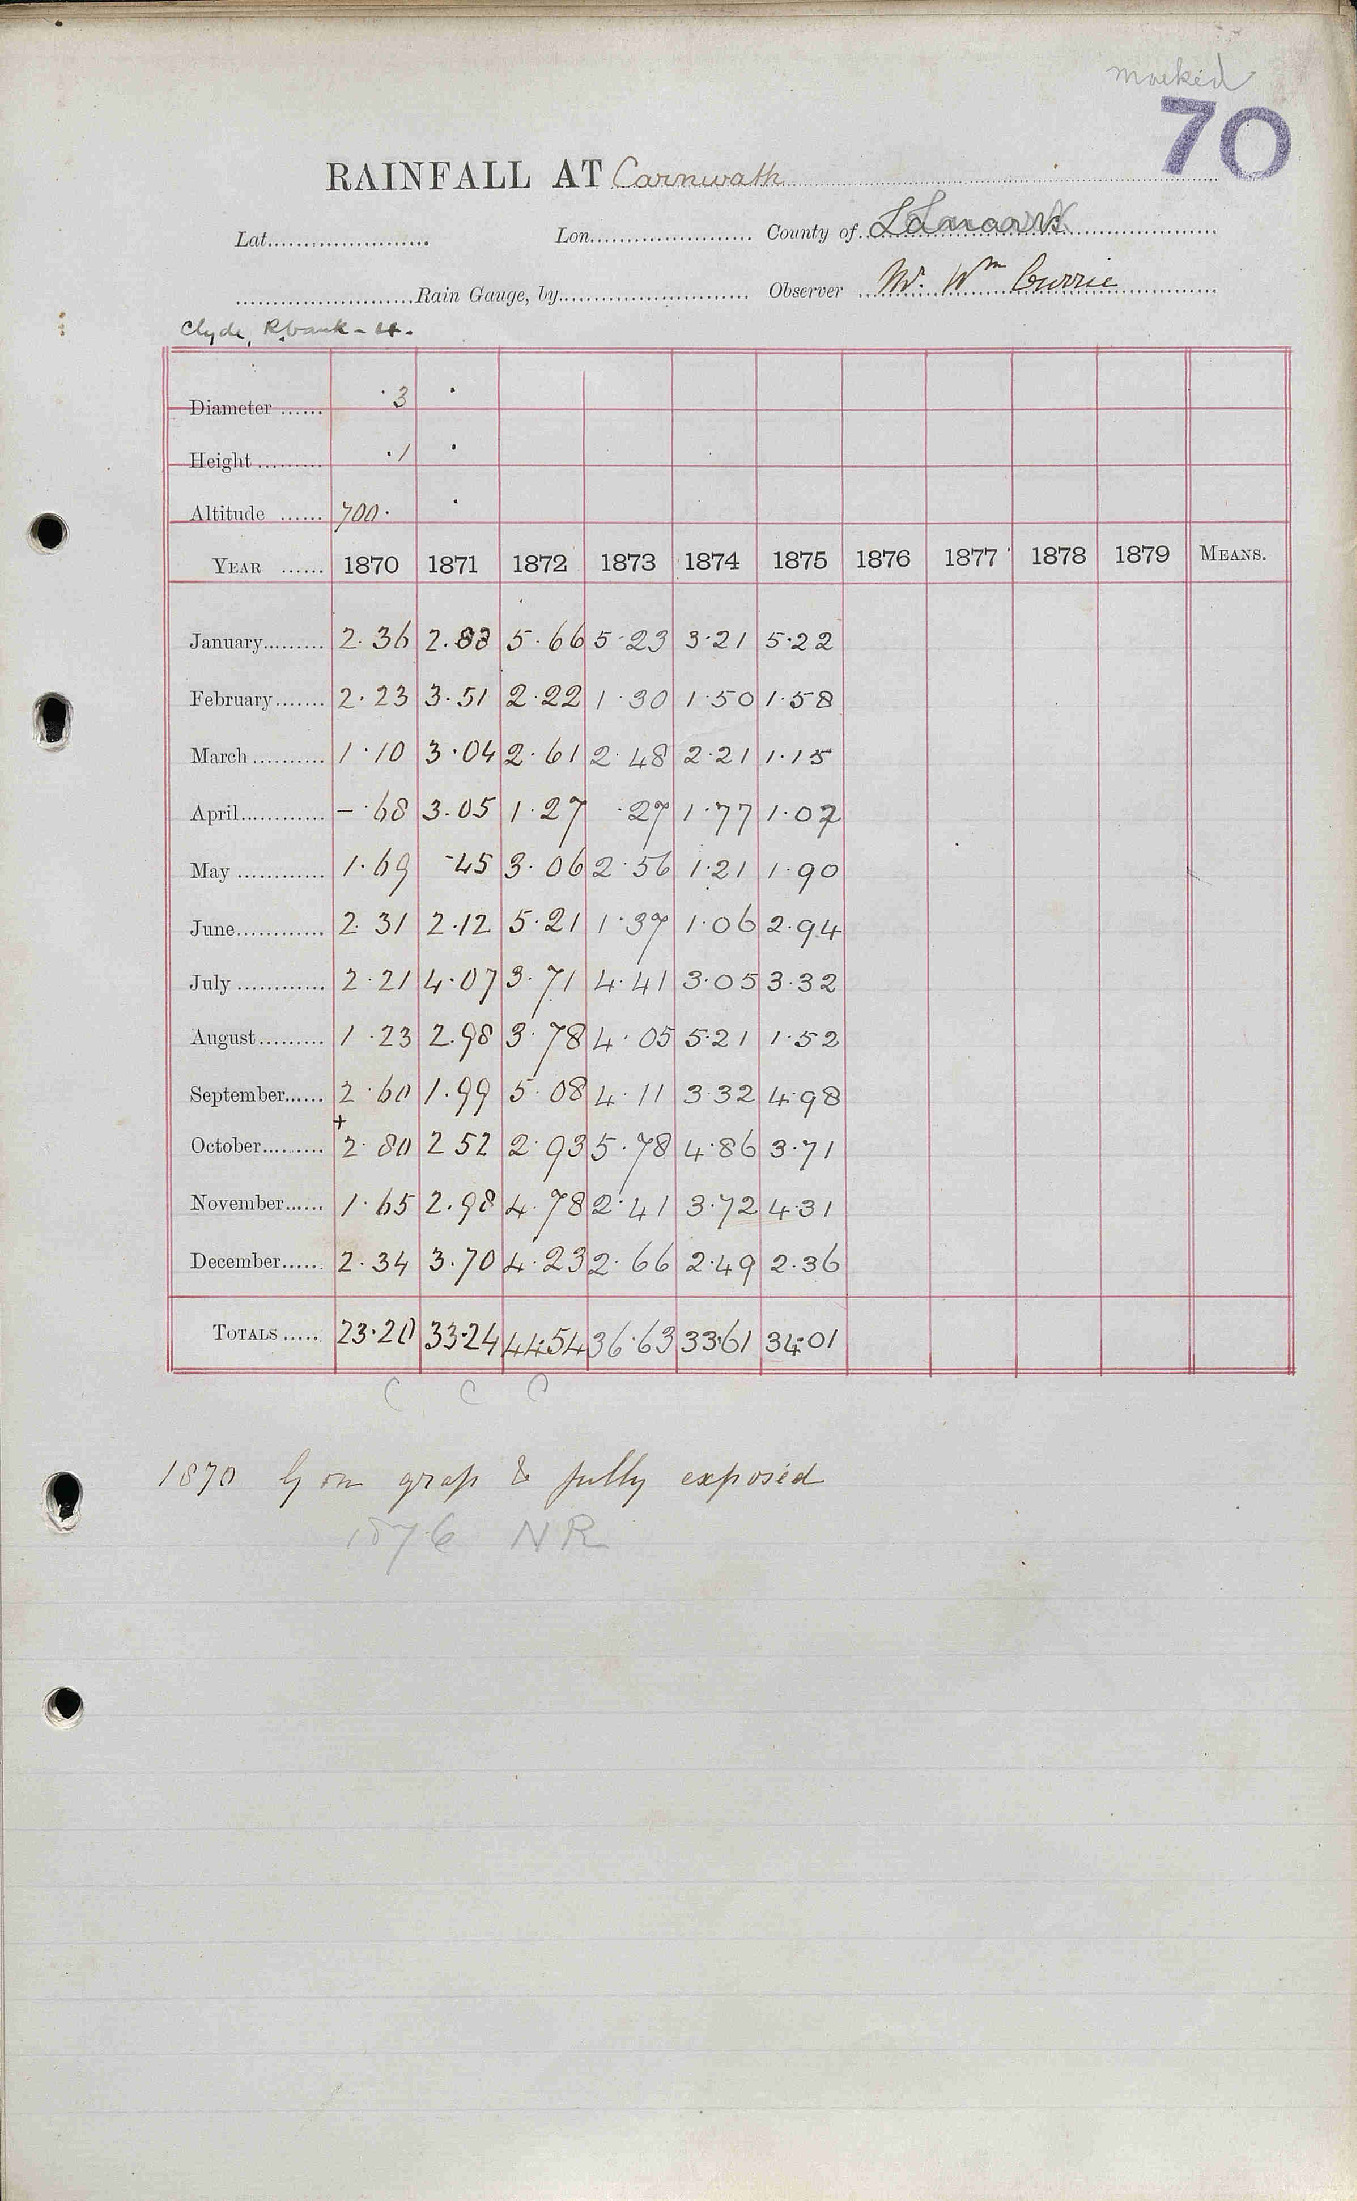 marked
70
RAINFALL AT Carnwath
Lat. Lon. County of Lanark
Rain Gauge, by Observer Mr. Wm Currie
Clyde, R.bank - 4.
Diameter ...... ·3 ·
Height ......... ·1 ·
Altitude ...... 700· ·
YEAR ...... 1870 1871 1872 1873 1874 1875 1876 1877 1878 1879 MEANS.
January......... 2·36 2·83 5·66 5·23 3·21 5·22
February....... 2·23 3·51 2·22 1·30 1·50 1·58
March .......... 1·10 3·04 2·61 2·48 2·21 1·15
April............ -·68 3·05 1·27 ·27 1·77 1·02
May ............ 1·69 ·45 3·06 2·56 1·21 1·90
June............ 2·31 2·12 5·21 1·37 1·06 2·94
July ............ 2·21 4·07 3·71 4·41 3·05 3·32
August......... 1·23 2·98 3·78 4·05 5·21 1·52
September...... 2·60 1·99 5·08 4·11 3·32 4·98
October......... +2·80 2 52 2·93 5·78 4·86 3·71
November...... 1·65 2·98 4·78 2·41 3·72 4·31
December...... 2·34 3·70 4·23 2·66 2·49 2·36
TOTALS ..... 23·20 33·24 44·54 36·63 33·61 34·01
C C C
1870 G on grass & fully exposed
1876 NR